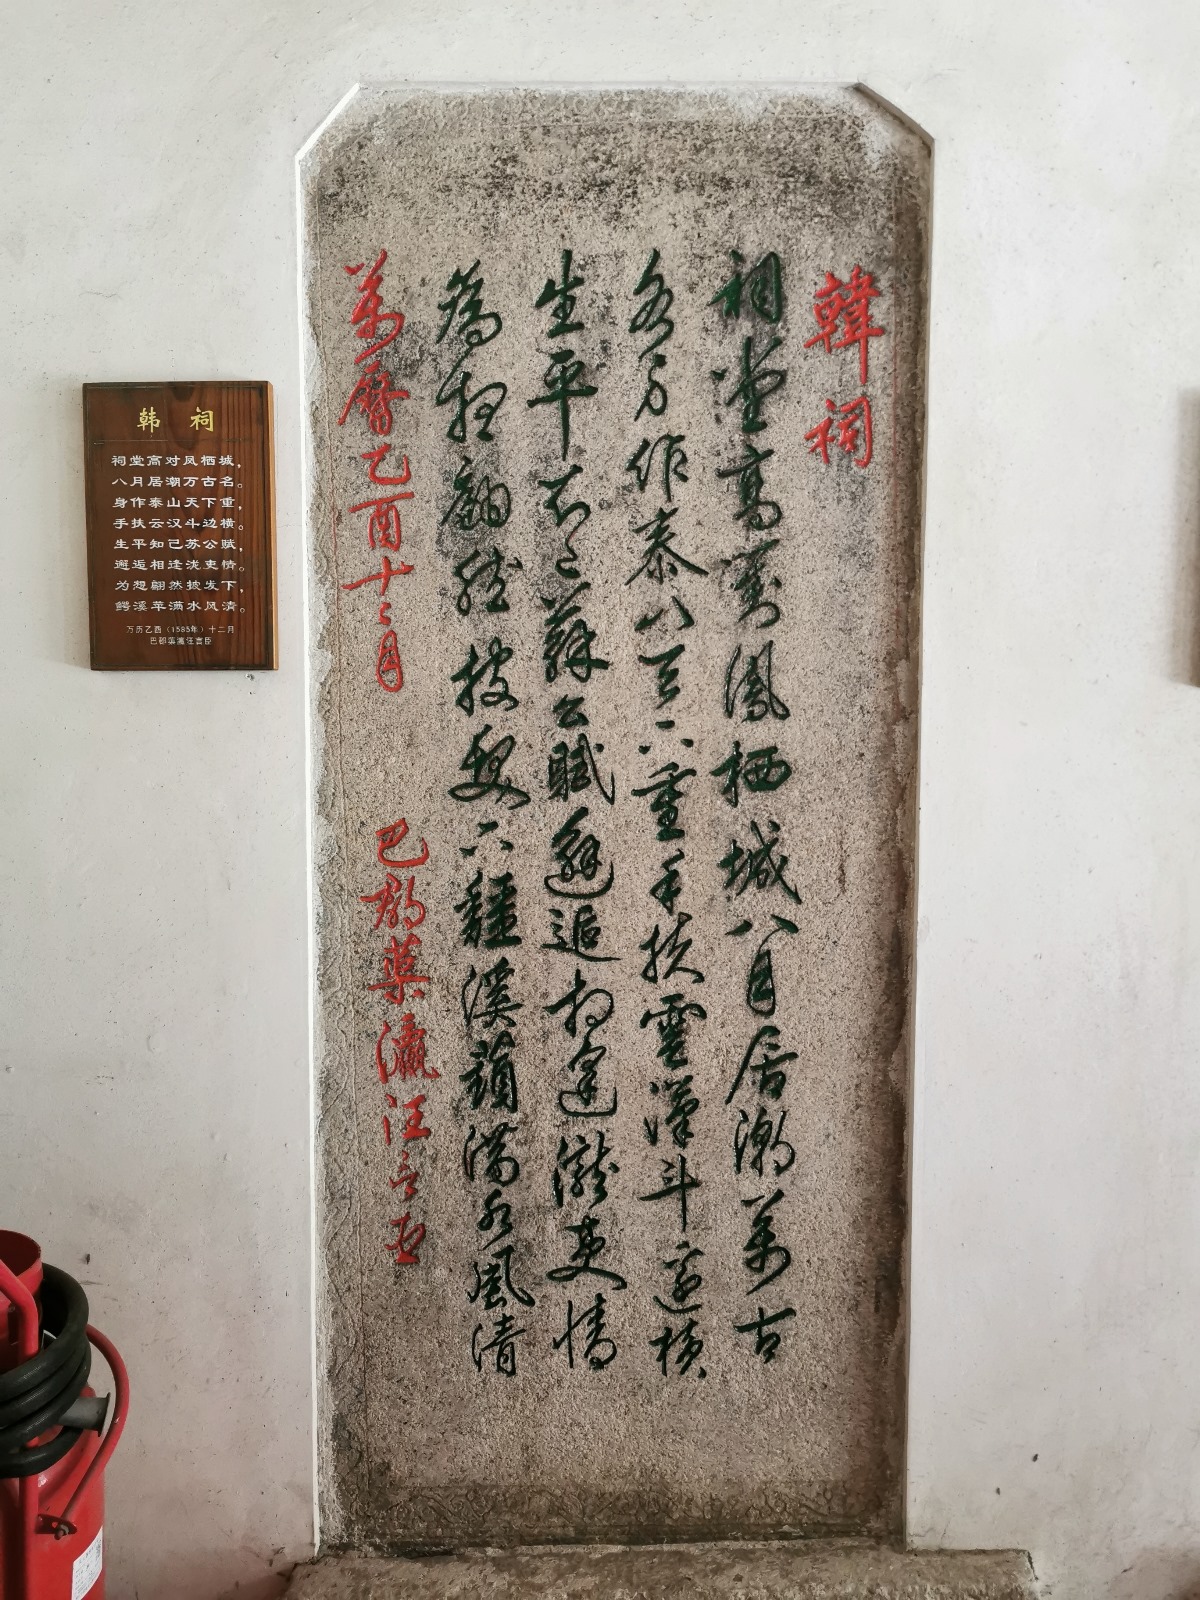 韓祠
祠堂高對鳳栖城八月居潮萬古
名身作泰山天下重手扶雲漢斗邊橫
生平知己蘇公賦邂逅相逢瀧吏情
為想翩然披髮下鱷溪蘋滿水風清
萬曆乙酉十二月 巴郡藥灜汪言臣
韩 祠
祠堂高对凤栖城，
八月居潮万古名。
身作泰山天下重，
手扶云汉斗边横。
生平知己苏公赋，
邂逅相逢泷吏情。
为想翩然披发下，
鳄溪苹满水风清。
万历乙酉（1585年）十二月
巴郡药瀛汪言臣